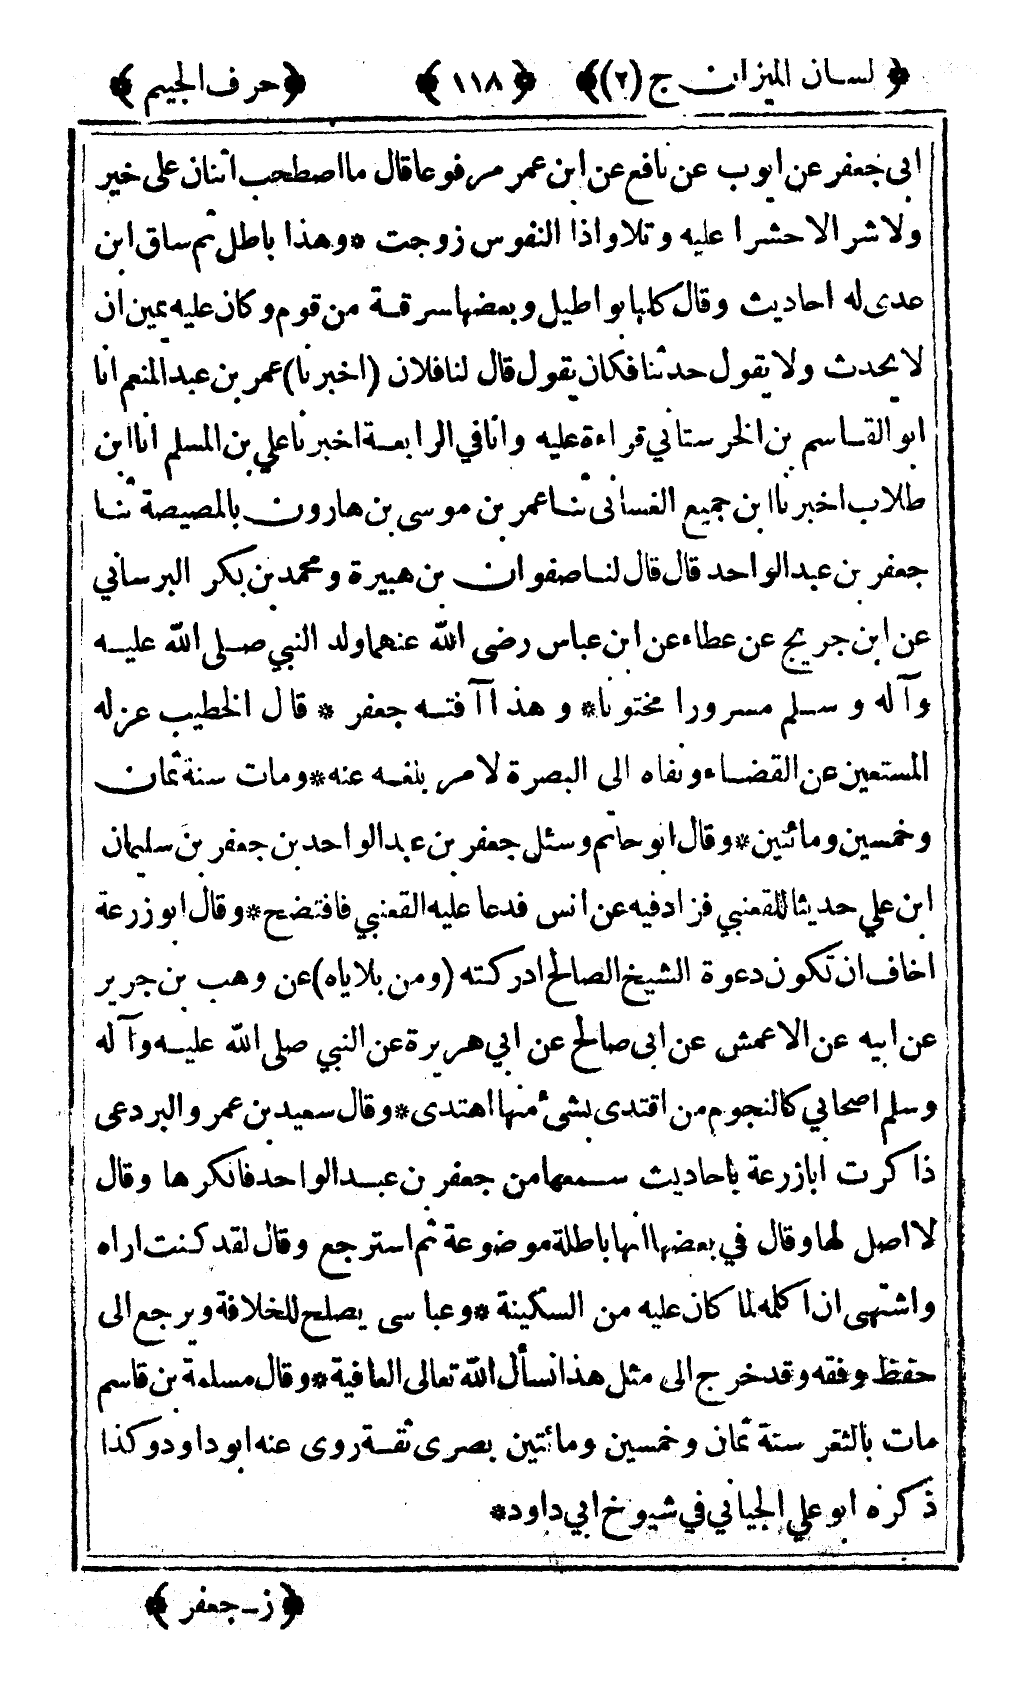 ﴿ لسان الميزان ج (٢) ﴾ ﴿ ١١٨ ﴾ ﴿ حرف الجيم ﴾
ابى جعفر عن ايوب عن نافع عن ابن عمر مرفوعا قال ما اصطحب اثنان على خير
ولا شر الا حشرا عليه وتلا واذا النفوس زوجت * وهذا باطل ثم ساق ابن
عدى له احاديث وقال كلها بواطيل وبعضها سرقة من قوم وكان عليه يمين ان
لا يحدث ولا يقول حدثنا فكان يقول قال لنا فلان (اخبرنا) عمر بن عبد المنعم انا
ابو القاسم بن الخرستاني قراءة عليه وانا في الرابعة اخبرنا علي بن المسلم انا ابن
طلاب اخبرنا ابن جميع الغسانى ثنا عمر بن موسى بن هارون بالمصيصة ثنا
جعفر بن عبد الواحد قال قال لنا صفوان بن هبيرة ومحمد بن بكر البرساني
عن ابن جريج عن عطاء عن ابن عباس رضى الله عنهما ولد النبي صلى الله عليه
وآله وسلم مسرورا مختونا * وهذا آفته جعفر * قال الخطيب عزله
المستعين عن القضاء ونفاه الى البصرة لامر بلغه عنه * ومات سنة ثمان
وخمسين ومائتين * وقال ابو حاتم وسئل جعفر بن عبد الواحد بن جعفر بن سليمان
ابن علي حديثا للقعنبي فزاد فيه عن انس فدعا عليه القعنبي فافتضح * وقال ابو زرعة
اخاف ان تكون دعوة الشيخ الصالح ادركته (ومن بلاياه) عن وهب بن جرير
عن ابيه عن الاعمش عن ابى صالح عن ابي هريرة عن النبي صلى الله عليه وآله
وسلم اصحابي كالنجوم من اقتدى بشىء منها اهتدى * وقال سعيد بن عمرو البردعى
ذاكرت ابا زرعة باحاديث سمعها من جعفر بن عبد الواحد فانكرها وقال
لا اصل لها وقال في بعضها انها باطلة موضوعة ثم استرجع وقال لقد كنت اراه
واشتهى ان اكلمه لما كان عليه من السكينة * وعباسى يصلح للخلافة ويرجع الى
حفظ وفقه وقد خرج الى مثل هذا نسأل الله تعالى العافية * وقال مسلمة بن قاسم
مات بالثغر ستة ثمان وخمسين ومائتين بصرى ثقة روى عنه ابو داود وكذا
ذكره ابو علي الجياني في شيوخ ابي داود *
﴿ ز - جعفر ﴾